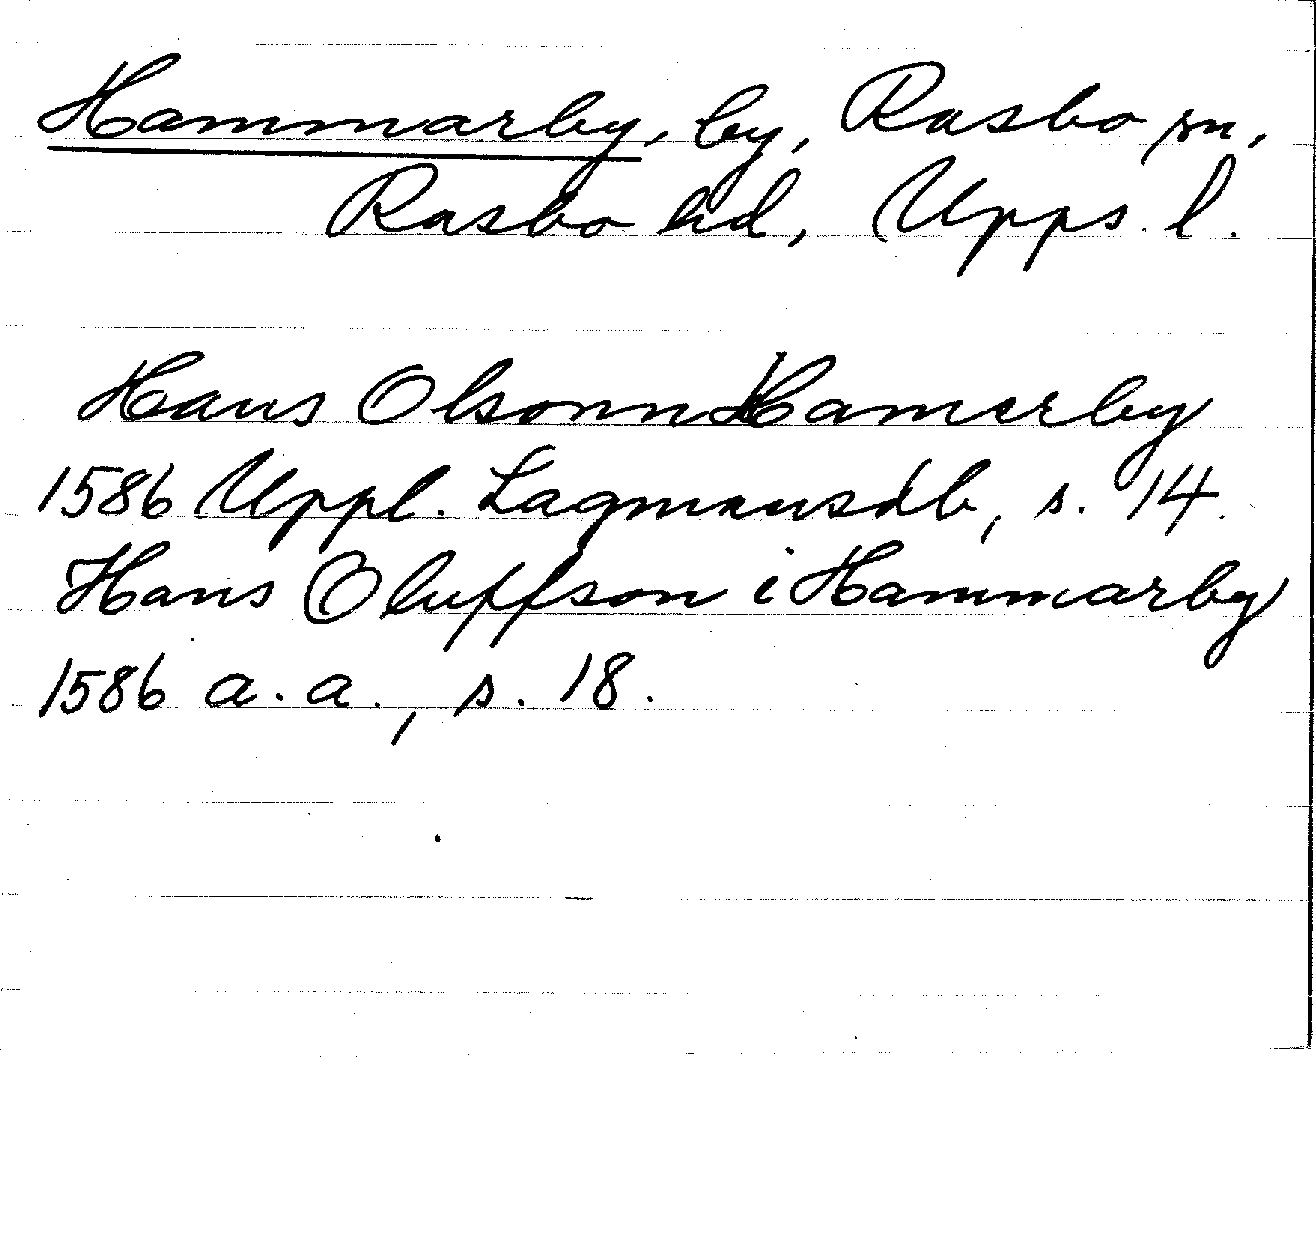 Hammarby, by, Rasbo sn,
Rasbo hd, Upps. l.
Hans Olsonn Hamerby
1586 Uppl. Lagmansdb, s. 14.
Hans Oluffson i Hammarby
1586 a. a., s. 18.